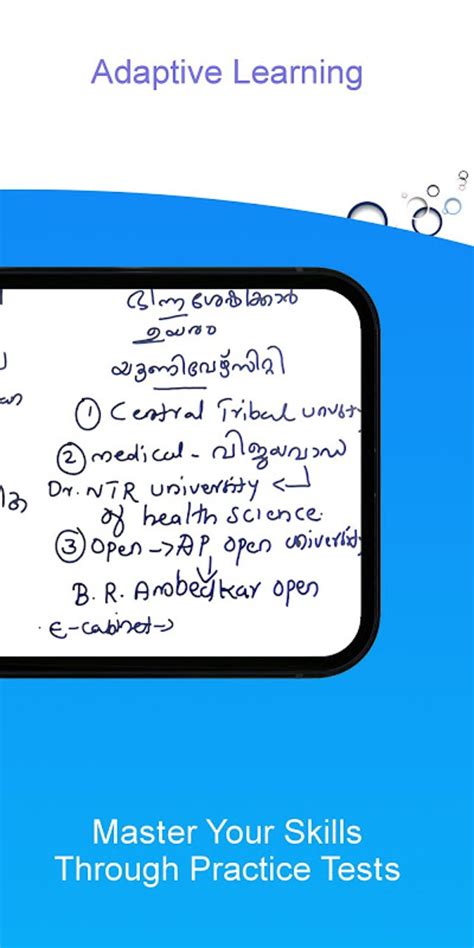 Adaptive Learning
ഭിന്ന ശേഷിക്കാർ
ഉയരം
യൂണിവേഴ്സിറ്റി
① Central Tribal
② medical - വിജയവാഡ
Dr. NTR university ↵
of health science.
③ open → AP open university
B. R. Ambedkar open
· E-cabinet →
Master Your Skills
Through Practice Tests